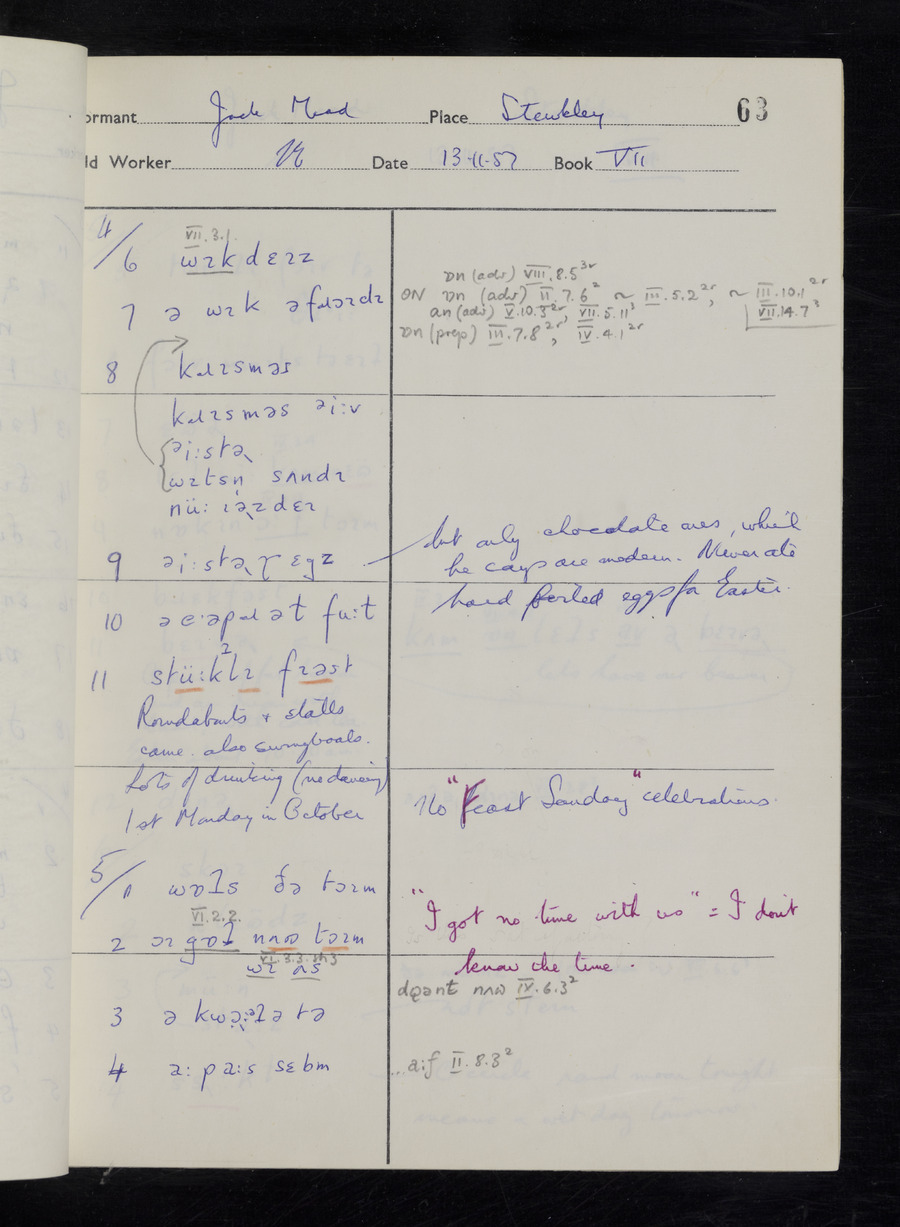 ormant Jack Mead Place Stewkley 63
ld Worker Date 13-11-57 Book VII
4/
VII.3.1.
6 wɪkdɛɪz
7 ə wɪk əfɹəɪdɪ
8 kɹɪsməs
kɹɪsməs əi:v
əi:stə
wɪtsn̩ sʌndɪ
9 əi:stəɽ ɛgz
10
11 stü:klɪ
Roundabouts & stalls
came. also swingboats.
Lots of drinking (no dancing)
1st Monday in October
5/
1 ðə təɪm
VI.2.2.
2 təɪm
VI.3.3.
wɪ ʌs
3
4 sɛbm
ɒn (adv) VIII.8.5
ON ɒn (adv) II.7.6² ~ III.5.2²ʳ, ~ III.10.1²ʳ
an (adv) V.10.3²ʳ, VII.5.11³ VII.14.7³
ɒn (prep) III.7.8²ʳ, IV.4.1²ʳ
but only chocolate ones, which
he says are modern. Never ate
hard boiled eggs for Easter.
No "Feast Sunday" celebrations.
"I got no time with us" = I don't
know the time.
IV.6.3²
...a:f II.8.3²